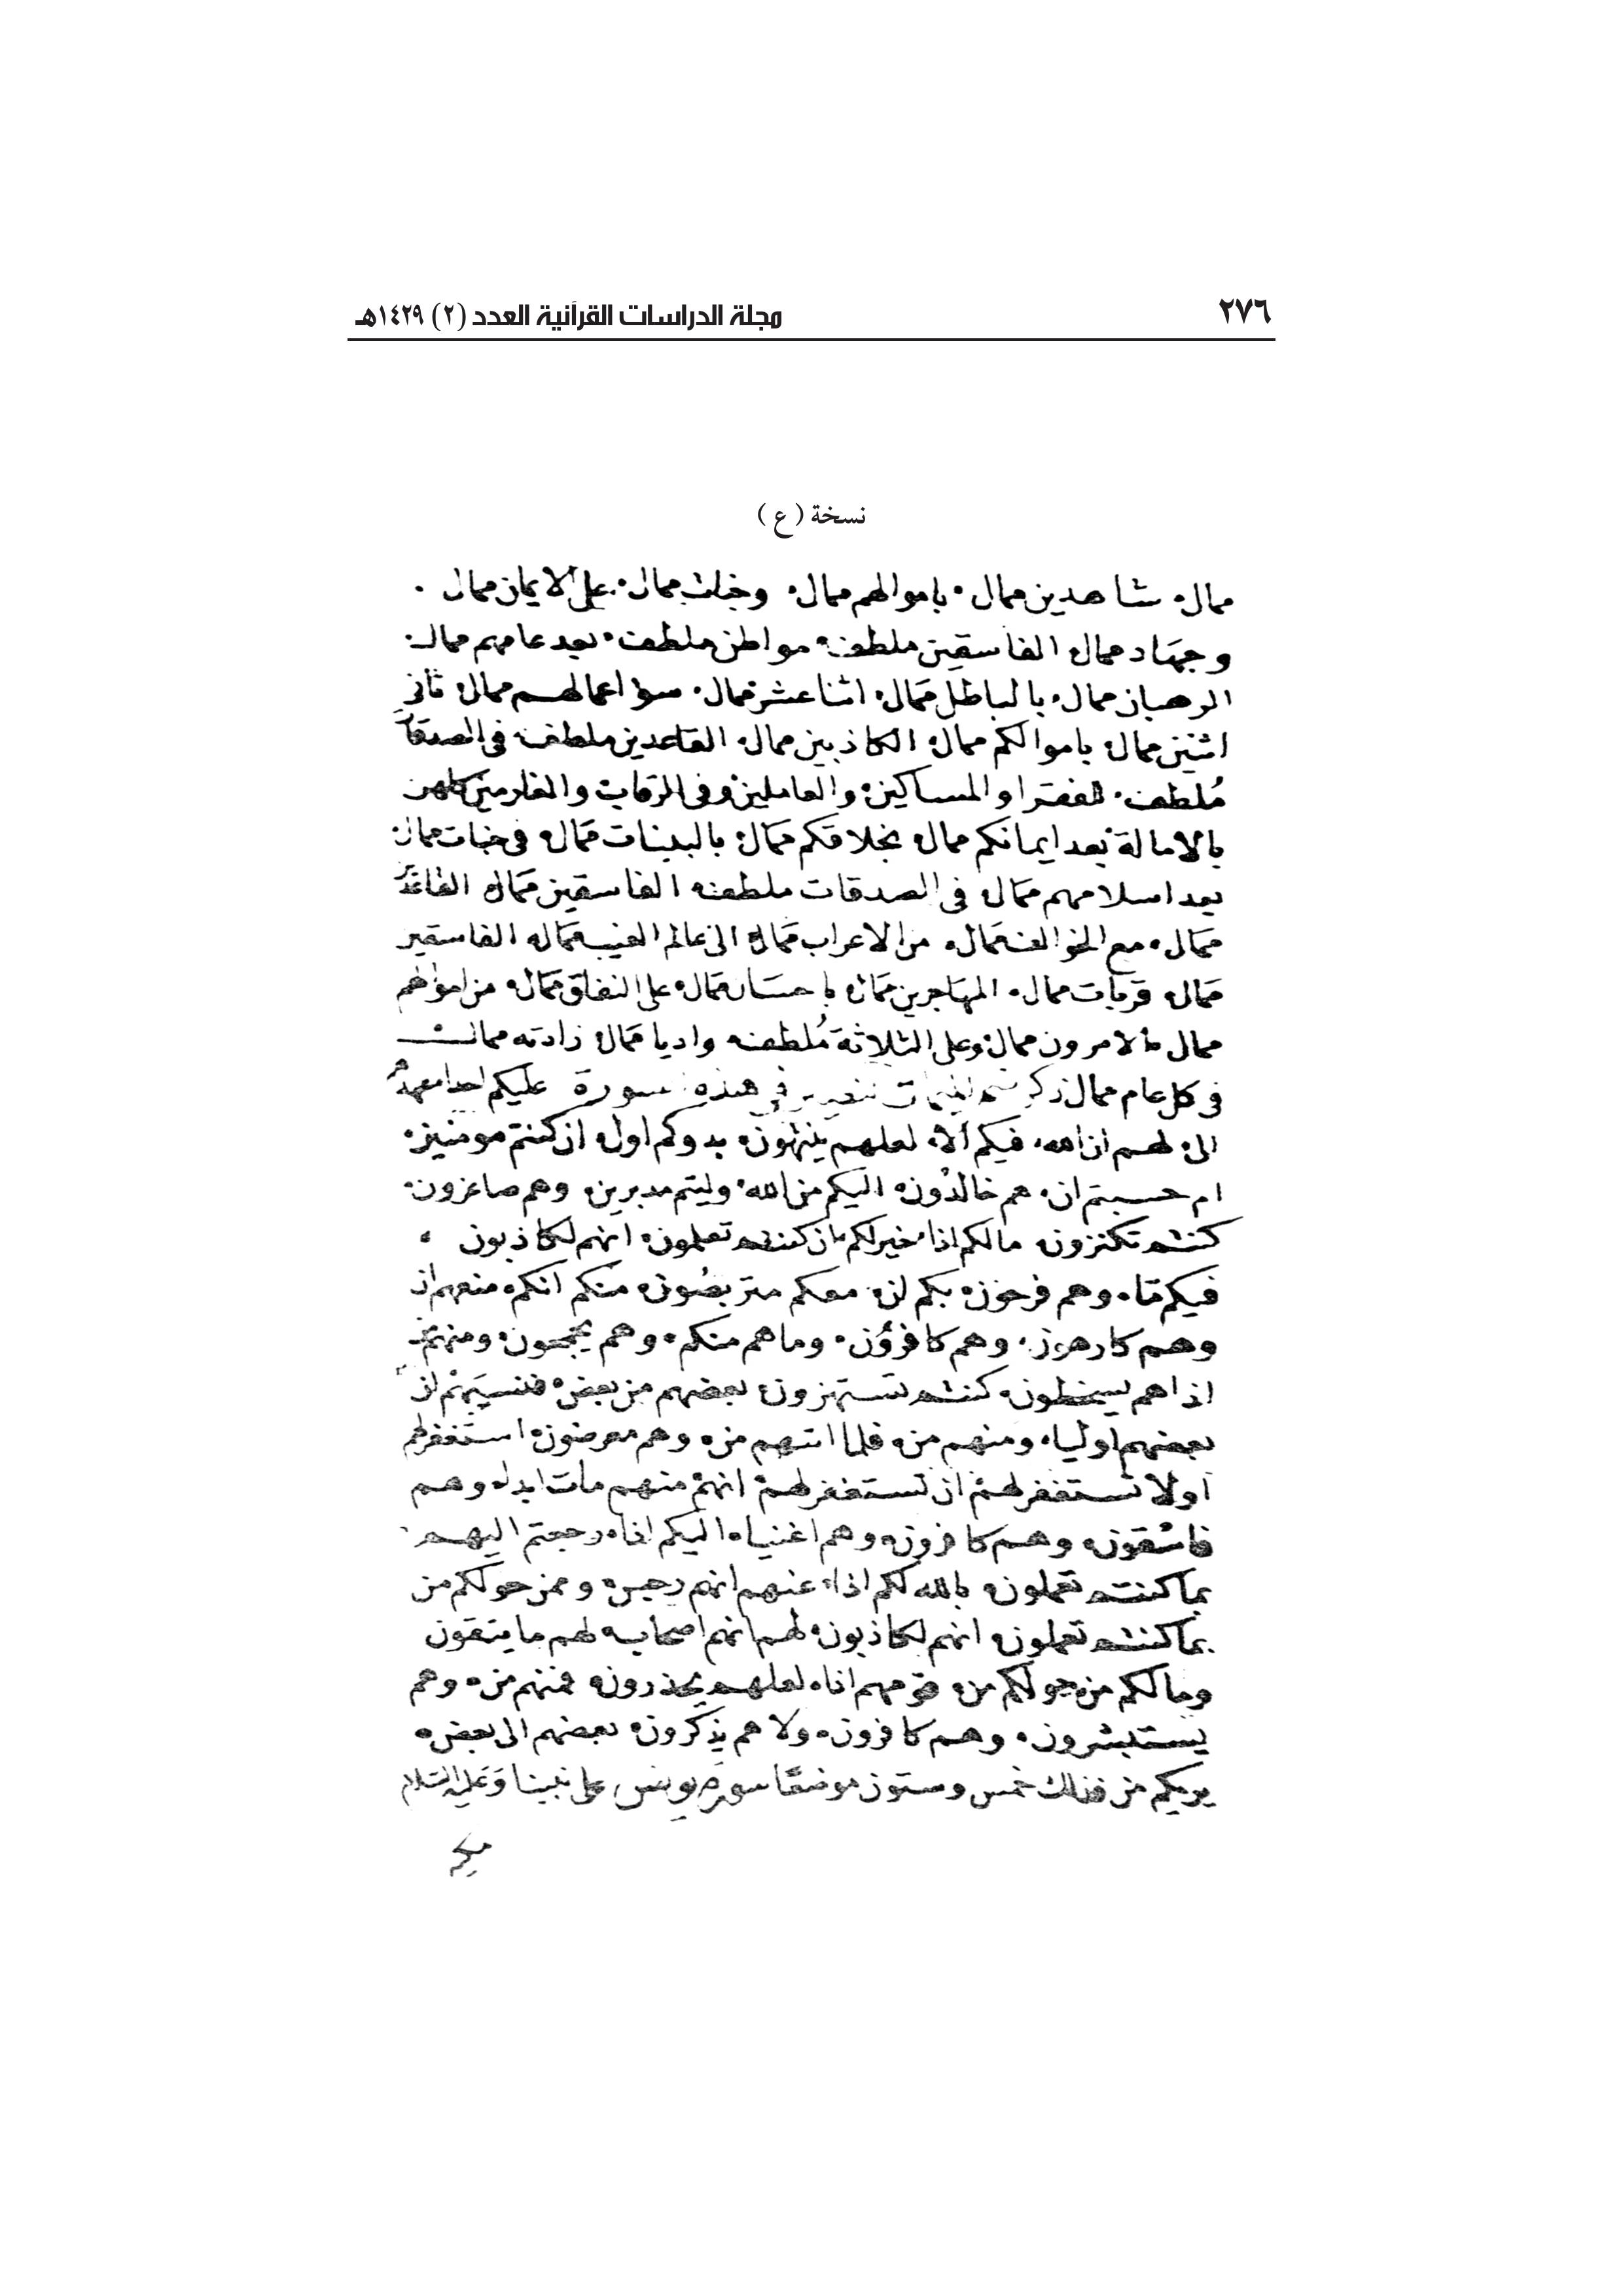 ٢٧٦
مجلة الدراسات القرآنية العدد (٢) ١٤٢٩هـ
نسخة (ع)
ممال شاهدين ممال باموالهم ممال وجنات ممال على الايمان ممال
وجهاد ممال الفاسقين ملطف مواطن ملطف بعد عامهم ممال
الرهبان ممال بالباطل ممال اثنا عشر ممال سوا اعمالهم ممال ثانى
اثنين ممال باموالكم ممال الكاذبين ممال القاعدين ملطف فى الصدقات
مُلطف للفقرا والمساكين والعاملين وفى الرقاب والغارمين كلهن
بالامالة بعد ايمانكم ممال بخلاقكم ممال بالبينات ممال فى جنات ممال
بعد اسلامهم ممال فى الصدقات ملطف الفاسقين ممال القاعدين
ممال مع الخوالف ممال من الاعراب ممال الى عالم الغيب ممال الفاسقين
ممال قربات ممال المهاجرين ممال باحسان ممال على النفاق ممال من اموالهم
ممال الامرون ممال وعلى الثلاثة مُلطف واديا ممال زادته ممالت
فى كل عام ممال ذكر فى هذه سورة عليكم احدا
الى لهم ان الله فيكم الا لعلهم ينتهون بدوكم اول ان كنتم مومنين
ام حسبتم ان هم خالدون اليكم من الله وليتم مدبرين وهم صاغرون
كنتم تكنزون مالكم اذا خير لكم ان كنتم تعلمون انهم لكاذبون
فيكم ما وهم فرحون بكم ان معكم متربصون منكم انكم منعهم ان
وهم كارهون وهم كافرون وما هم منكم وهم يجمحون ومنهم من
اذا هم يسخطون كنتم تستهزون بعضهم من بعض فنسيهم ان
بعضهم اوليا ومنهم من فلما اتيهم من وهم معرضون استغفر لهم
اولا تستغفر لهم ان تستغفر لهم انهم منهم مات ابدا وهم
فاسقون وهم كافرون وهم اغنيا اليكم اذا رجعتم اليهم
بما كنتم تعملون بالله لكم اذا عنهم انهم رجس وممن حولكم من
بما كنتم تعملون انهم لكاذبون لهم انهم اصحاب لهم ما يتقون
وما لكم من حولكم من قومهم اذا لعلهم يحذرون فمنهم من وهم
يستبشرون وهم كافرون ولا هم يذكرون بعضهم الى بعض
يريكم من فذلك خمس وستون موضعا سورة يونس على نبينا وعليه السلام